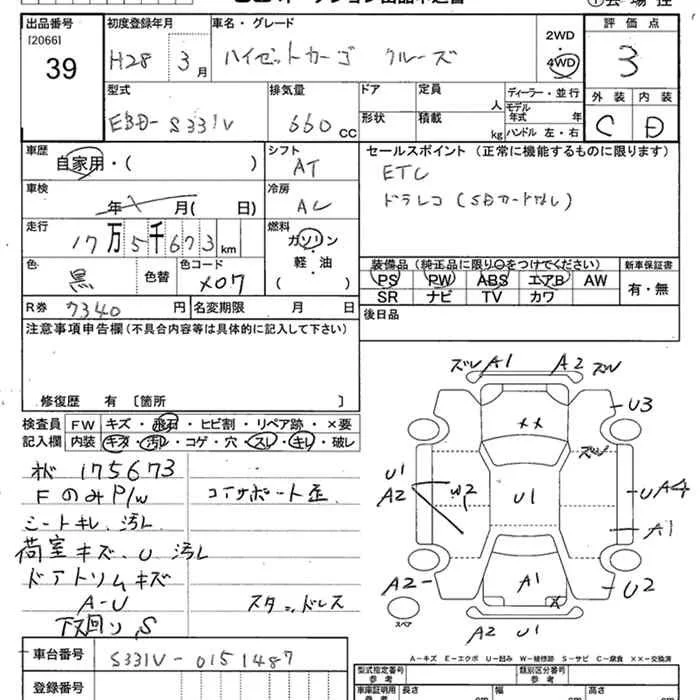 出品番号 初度登録年月 車名・グレード 評価点
[2066]
39
H28 3月 ハイゼットカーゴ クルーズ 2WD
4WD 3
型式 排気量 ドア 定員 ディーラー・並行 外装 内装
EBD-S331V 660 CC 形状 積載 人 モデル年式 年
kg ハンドル 左・右 C D
車歴 シフト セールスポイント（正常に機能するものに限ります）
自家用・( ) AT ETC
車検 冷房 ドラレコ (SDカードなし)
年 月( 日) AC
走行 燃料
17万5千673km ガソリン
軽・油
( )
色 黒 色替 色コード X07
装備品（純正品に限り○をつけてください） 新車保証書
PS PW ABS エアB AW 有・無
SR ナビ TV カワ
R券 7340円 名変期限 月 日 後日品
注意事項申告欄（不具合内容等は具体的に記入して下さい）
修復歴 有 〔箇所 〕
検査員 FW キズ・飛石・ヒビ割・リペア跡・×要
記入欄 内装 キズ・汚れ・コゲ・穴・スレ・キレ・破レ
175673
Fのみ P/W コアサポート歪
シートキレ、汚レ
荷室キズ、U 汚レ
ドアトリムキズ
A-U スタッドレス
下回り S
ズレ A1 A2 ズレ
U3
××
ズレ
U1
A2
W2
U1
UA4
A1
A2
A1
×
U2
スペア
A2 U1
A-キズ E-エクボ U-凹み W-補修跡 S-サビ C-腐食 ××-交換済
車台番号 S331V-0151487
登録番号
型式指定番号 参考 類別区分番号 参考
車庫証明用 参考 長さ cm 幅 cm 高さ cm